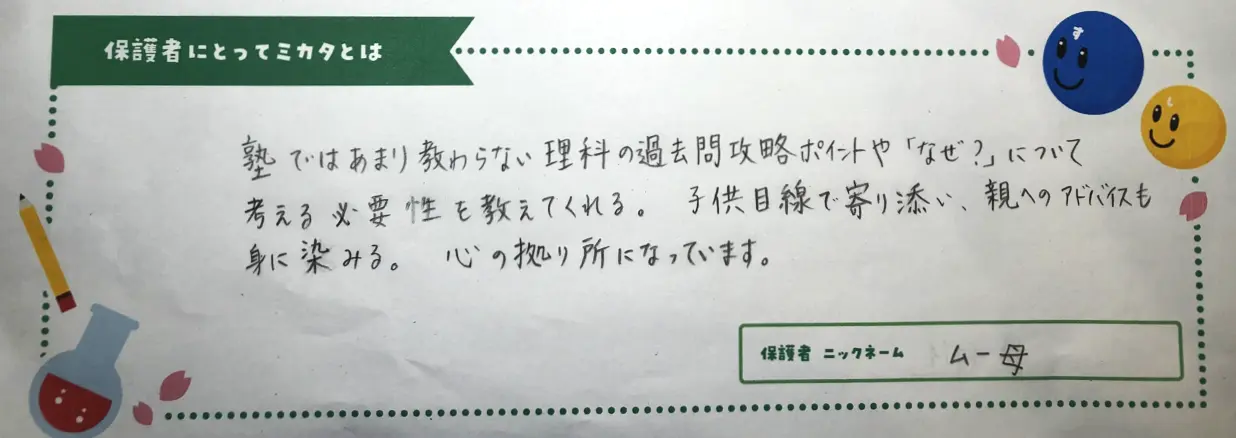 保護者にとってミカタとは
す
し
塾ではあまり教わらない理科の過去問攻略ポイントや「なぜ?」について
考える必要性を教えてくれる。 子供目線で寄り添い、親へのアドバイスも
身に染みる。 心の拠り所になっています。
保護者 ニックネーム ムー母